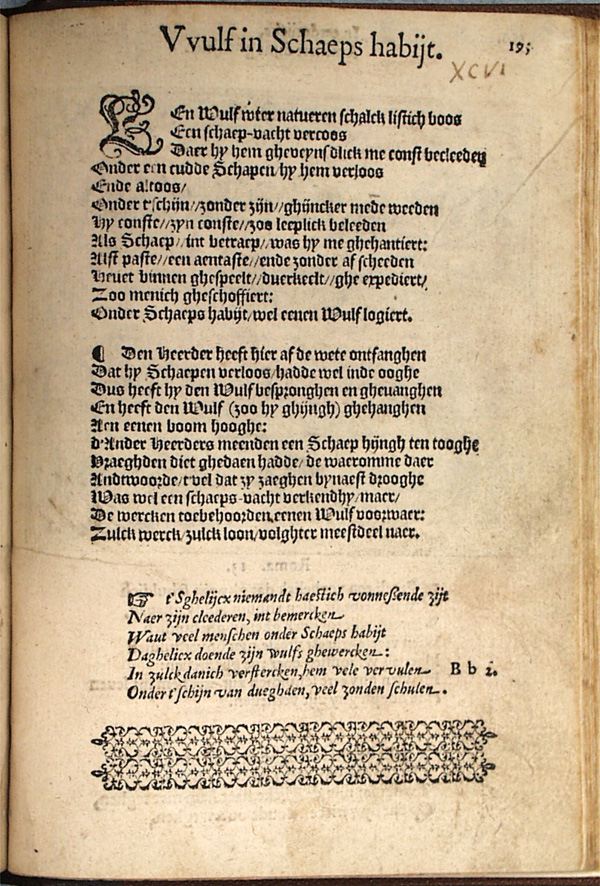 Vvulf in Schaeps habijt. 195
XCVI
EEn Wulf wter natueren schalck listich boos
Een schaep-vacht vercoos
Daer hy hem gheveynsdlick me const becleeden
Onder een cudde Schapen/ hy hem verloos
Ende altoos/
Onder t'schijn//zonder zijn//ghijncker mede weeden
Hy conste//zyn conste//zoo leeplick beleeden
Als Schaep//int betraep//was hy me ghehantiert:
Alst paste//een aentaste//ende zonder af scheeden
Heuet binnen ghespeelt//duerkeelt//ghe expediert/
Zoo menich gheschoffiert:
Onder Schaeps habijt/wel eenen Wulf logiert.
¶ Den Heerder heeft hier af de wete ontfanghen
Dat hy Schaepen verloos/hadde wel inde ooghe
Dus heeft hy den Wulf bespronghen en ghevanghen
En heeft den Wulf (zoo hy ghijngh) ghehanghen
Aen eenen boom hooghe:
d'Ander Heerders meenden een Schaep hijngh ten tooghe
Vraeghden diet ghedaen hadde/ de waeromme daer
Andtwoorde/t'vel dat zy zaeghen bynaest drooghe
Was wel een schaeps-vacht verkendhy/maer/
De wercken toebehoorden,eenen Wulf voorwaer:
Zulck werck/zulck loon/volghter meestdeel naer.
☞ t'Sghelijcx niemandt haestich vonnessende zijt
Naer zijn cleederen, int bemercken
Waut veel menschen onder Schaeps habijt
Daghelicx doende zijn wulfs ghewercken:
In zulck danich verstercken,hem vele vervulen
Onder t'schijn van dueghden, veel zonden schulen.
Bb 2.